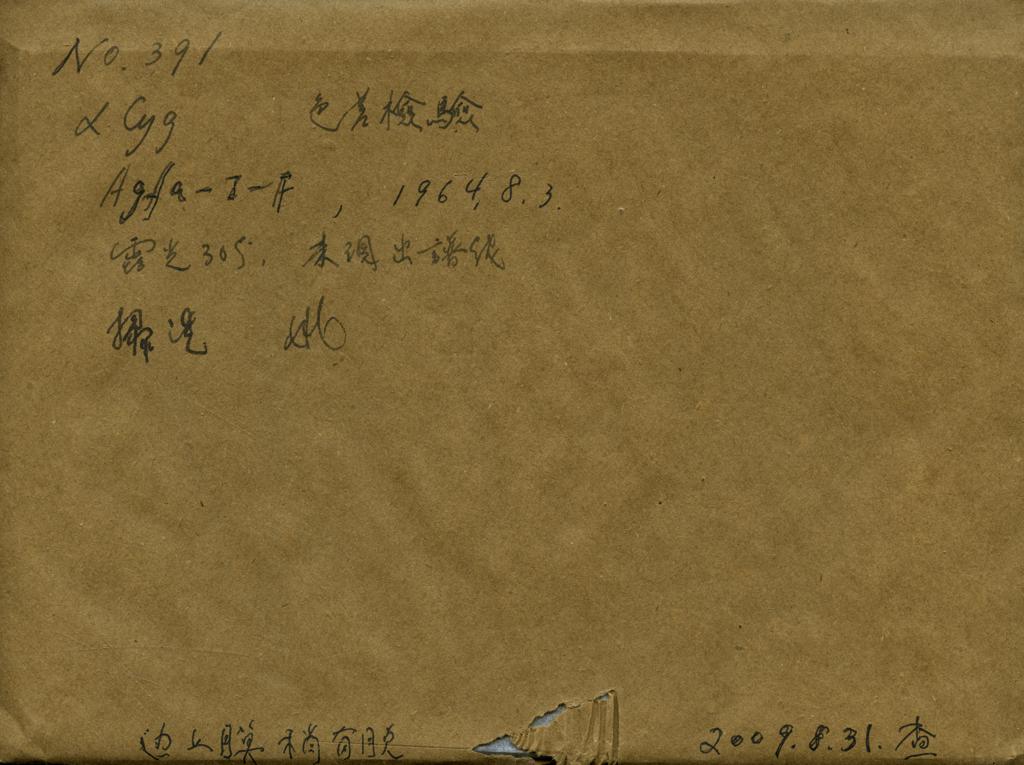 No. 391
α Cyg 色差檢驗
Agfa-I-F, 1964, 8.3.
露光30s, 未現出譜线
攝選 姚
边上膜稍有脱
2009.8.31. 查